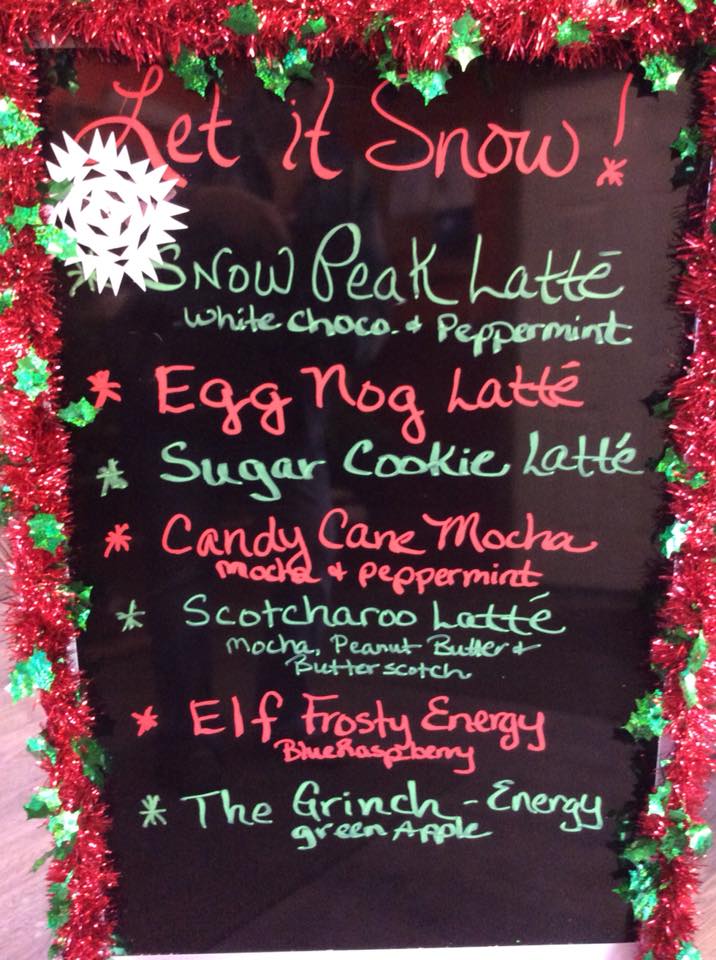 Let it Snow!
* Snow Peak Latté
White Choco. + Peppermint
* Egg Nog Latté
* Sugar Cookie Latté
* Candy Cane Mocha
Mocha + Peppermint
* Scotcharoo Latté
Mocha, Peanut Butter +
Butterscotch
* Elf Frosty Energy
Blue Raspberry
* The Grinch - Energy
green Apple